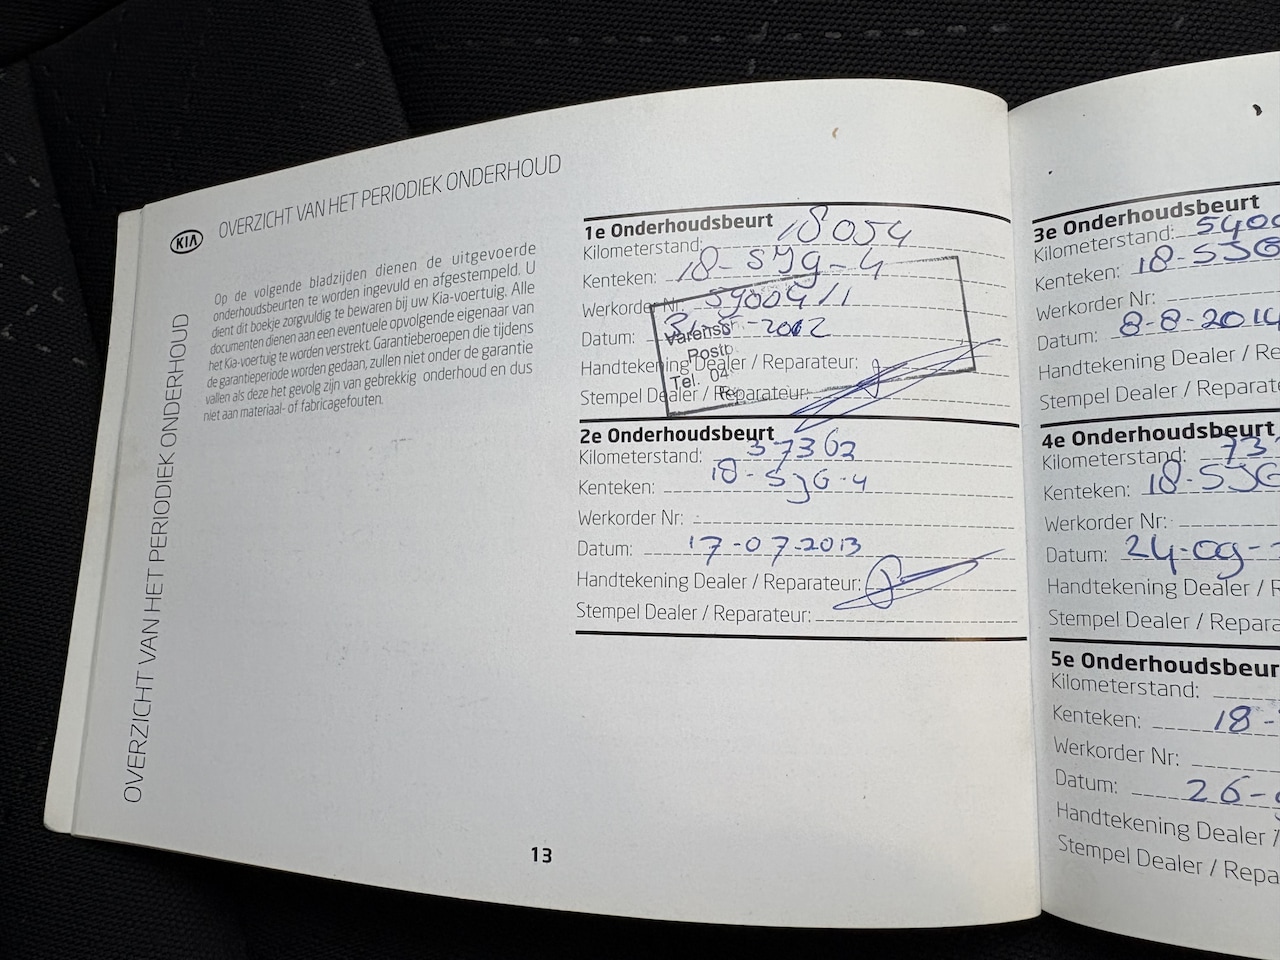 OVERZICHT VAN HET PERIODIEK ONDERHOUD
KIA
OVERZICHT VAN HET PERIODIEK ONDERHOUD
Op de volgende bladzijden dienen de uitgevoerde
onderhoudsbeurten te worden ingevuld en afgestempeld. U
dient dit boekje zorgvuldig te bewaren bij uw Kia-voertuig. Alle
documenten dienen aan een eventuele opvolgende eigenaar van
het Kia-voertuig te worden verstrekt. Garantieberoepen die tijdens
de garantieperiode worden gedaan, zullen niet onder de garantie
vallen als deze het gevolg zijn van gebrekkig onderhoud en dus
niet aan materiaal- of fabricagefouten.
1e Onderhoudsbeurt
Kilometerstand: 18054
Kenteken: 18-SJG-4
Werkorder Nr: 59004/1
Datum: 2012
Handtekening Dealer / Reparateur:
Stempel Dealer / Reparateur:
Postb
Tel. 04
2e Onderhoudsbeurt
Kilometerstand: 37362
Kenteken: 18-SJG-4
Werkorder Nr:
Datum: 17-07-2013
Handtekening Dealer / Reparateur:
Stempel Dealer / Reparateur:
13
3e Onderhoudsbeurt
Kilometerstand: 5400
Kenteken: 18-SJG
Werkorder Nr:
Datum: 8-8-2014
Handtekening Dealer / Re
Stempel Dealer / Reparat
4e Onderhoudsbeurt
Kilometerstand: 73
Kenteken: 18-SJG
Werkorder Nr:
Datum: 24-09-
Handtekening Dealer / R
Stempel Dealer / Repara
5e Onderhoudsbeur
Kilometerstand:
Kenteken: 18-
Werkorder Nr:
Datum: 26-
Handtekening Dealer /
Stempel Dealer / Repa